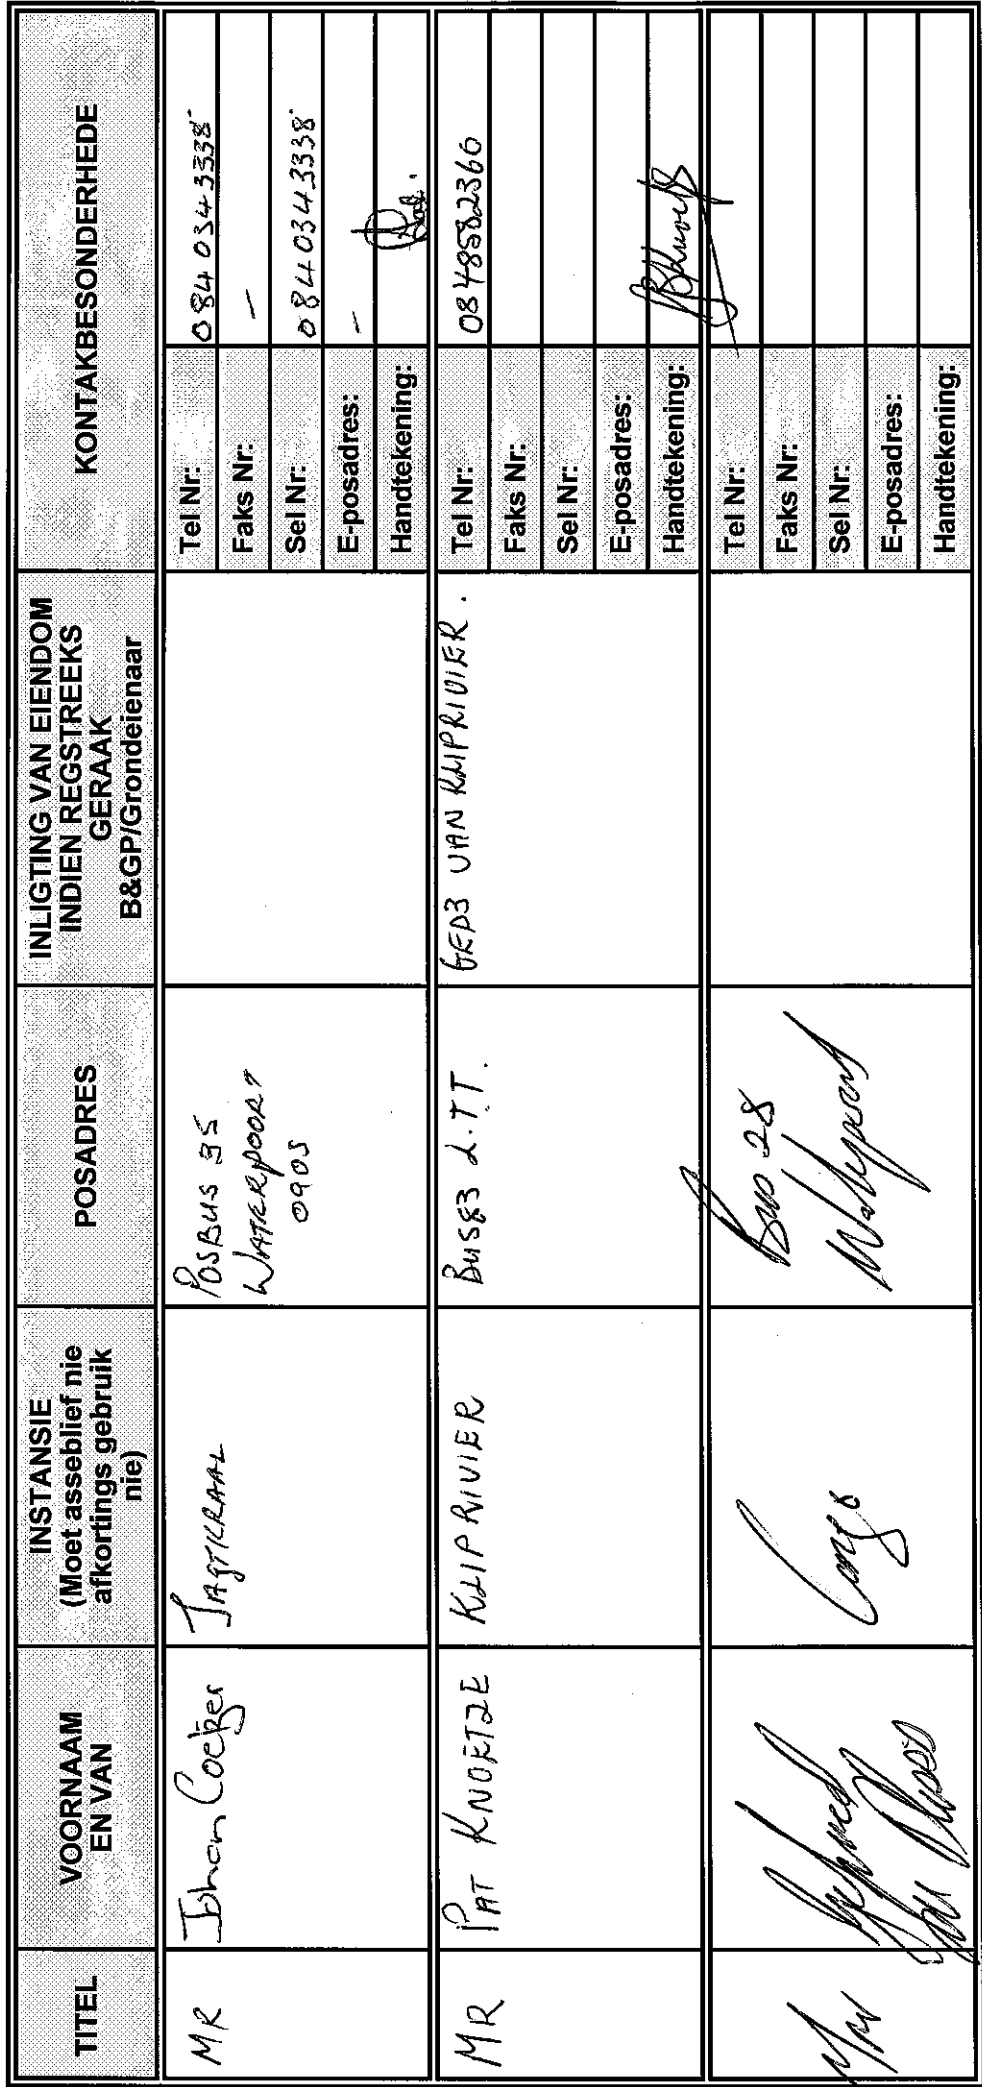 TITEL
VOORNAAM
EN VAN
INSTANSIE
(Moet asseblief nie
afkortings gebruik
nie)
POSADRES
INLIGTING VAN EIENDOM
INDIEN REGSTREEKS
GERAAK
B&GP/Grondeienaar
KONTAKBESONDERHEDE
MR
Johan Coetzer
JAGTKRAAL
POSBUS 35
WATERPOORT
0905
Tel Nr: 084 034 3338
Faks Nr: –
Sel Nr: 084 034 3338
E-posadres: –
Handtekening:
MR
PAT KNOETZE
KLIPRIVIER
BUS 83 L.T.T.
GED3 VAN KLIPRIVIER.
Tel Nr: 0848582366
Faks Nr:
Sel Nr:
E-posadres:
Handtekening:
Mr
Bus 28
Waterpoort
Tel Nr:
Faks Nr:
Sel Nr:
E-posadres:
Handtekening: